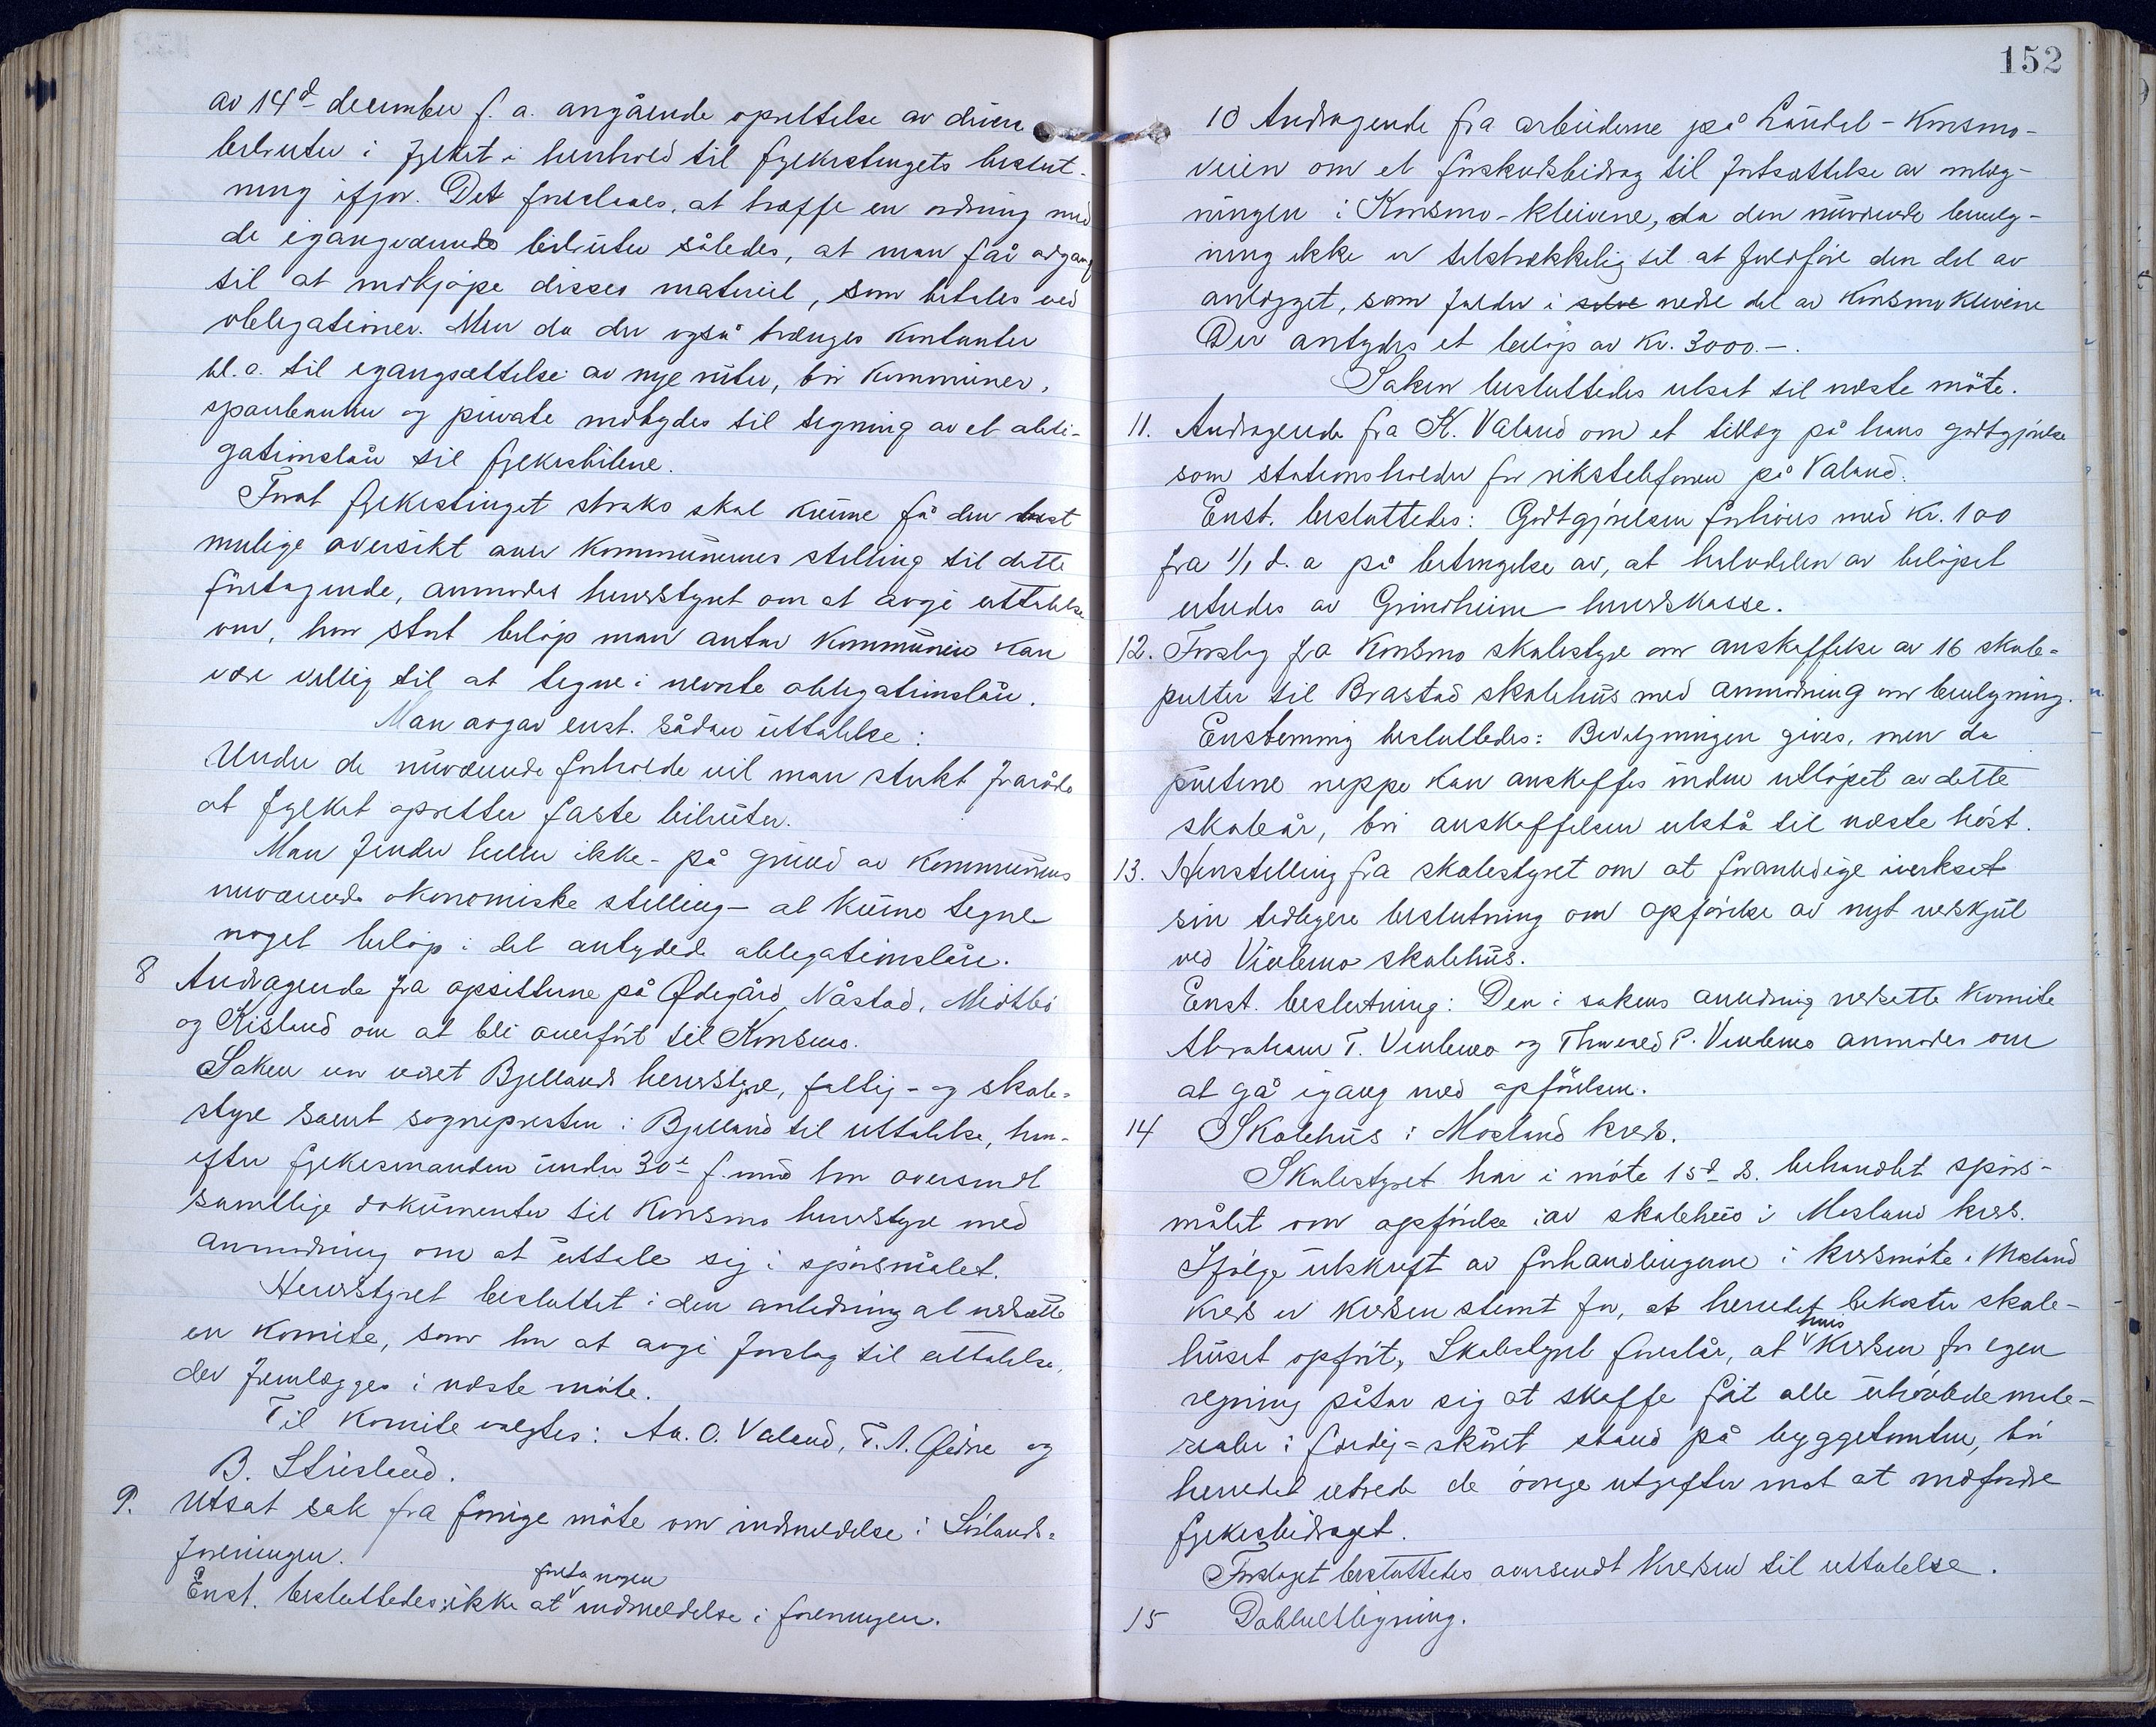 av 14d december f. a. angående oprettelse av diverse
bilruter i fylket i henhold til fylkestingets beslut-
ning ifjor. Det foreslaaes, at træffe en ordning med
de igangværende bilruter således, at man får adgang
til at indkjøpe disses materiel, som betales ved
obligationer. Men da der også trænges kontanter
bl. a. til igangsættelse av nye ruter, bør kommuner,
sparebanker og private indbydes til tegning av et obli-
gationslån til fylkesbilene.
Forat fylkestinget straks skal kunne få den best
mulige oversikt over kommunernes stilling til dette
foretagende, anmodes herredstyret om at avgi uttalelse
om, hvor stort beløp man antar kommunen kan
være villig til at tegne i nevnte obligationslån.
Man avgav enst. sådan uttalelse:
Under de nuværende forholde vil man sterkt fraråde
at fylket opretter faste bilruter.
Man finder heller ikke - på grund av kommunens
nuværende økonomiske stilling - at kunne tegne
noget beløp i det antydede obligationslån.
8 Andragende fra opsitterne på Ødegård, Nåstad, Midtbø
og Kisland om at bli overført til Konsmo.
Saken har været Bjellands herredstyre, fattig- og skole-
styre samt sognepresten i Bjelland til uttalelse, hvor-
efter fylkesmanden under 30te f. mnd har oversendt
samtlige dokumenter til Konsmo herredstyre med
anmodning om at uttale sig i spørsmålet.
Herredstyret besluttet i den anledning at nedsætte
en komite, som har at avgi forslag til uttalelse,
der fremlægges i næste møte.
Til komite valgtes: Aa. O. Valand, T. A. Øidne og
B. Stusland.
9. Utsat sak fra forrige møte om indmeldelse i Sørlands-
foreningen.
foreta nogen
Enst. besluttedes: ikke at indmeldelse i foreningen.
152
10 Andragende fra arbeiderne på Laudal - Konsmo-
veien om et forskudsbidrag til fortsættelse av anlæg-
ningen i Konsmo-kleivene, da den nuværende bevilg-
ning ikke er tilstrækkelig til at fuldføre den del av
anlægget, som falder i selve nedre del av Konsmokleivene
Der antydes et beløp av kr. 3000.-.
Saken besluttedes utsat til næste møte.
11. Andragende fra K. Valand om et tillæg på hans godtgjørelse
som stationsholder for rikstelefonen på Valand.
Enst. besluttedes: Godtgjørelsen forhøies med kr. 100
fra 1/1 d. a på betingelse av, at halvdelen av beløpet
utredes av Grindheim herredskasse.
12. Forslag fra Konsmo skolestyre om anskaffelse av 16 skole-
pulter til Brastad skolehus med anmodning om bevilgning.
Enstemmig besluttedes: Bevilgningen gives, men da
pultene neppe kan anskaffes inden utløpet av dette
skoleår, bør anskaffelsen utstå til næste høst.
13. Henstilling fra skolestyret om at foranledige iverksat
sin tidligere beslutning om opførelse av nyt vedskjul
ved Vivlemo skolehus.
Enst. beslutning: Den i sakens anledning nedsatte komite
Abraham T. Vivlemo og Thorvald P. Vivlemo anmodes om
at gå igang med opførelsen.
14 Skolehus i Mosland kreds.
Skolestyret har i møte 1sd ds. behandlet spørs-
målet om opførelse av skolehus i Mosland kreds.
Ifølge utskrift av forhandlingerne i kredsmøte i Mosland
kreds er kredsen stemt for, at herredet bekoster skole-
hvis
huset opført. Skolestyret foreslår, at kredsen for egen
regning påtar sig at skaffe frit alle utvirkede mate-
rialer i færdig-skåret stand på byggetomten, bør
herredet utrede de øvrige utgifter mot at indfordre
fylkesbidraget.
Forslaget besluttedes oversendt kredsen til uttalelse.
15 Dobbeltligning.